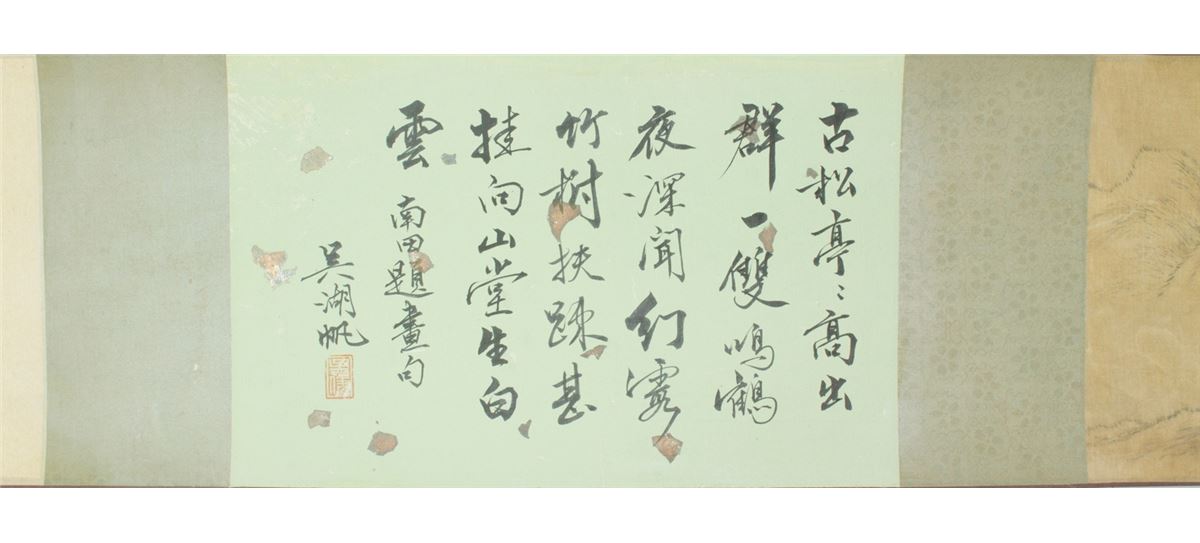 古松亭〻高出
群一雙鳴鶴
夜深聞幻霞
竹樹扶踈甚
挂向山堂生白
雲 南田題畫句
吳湖帆